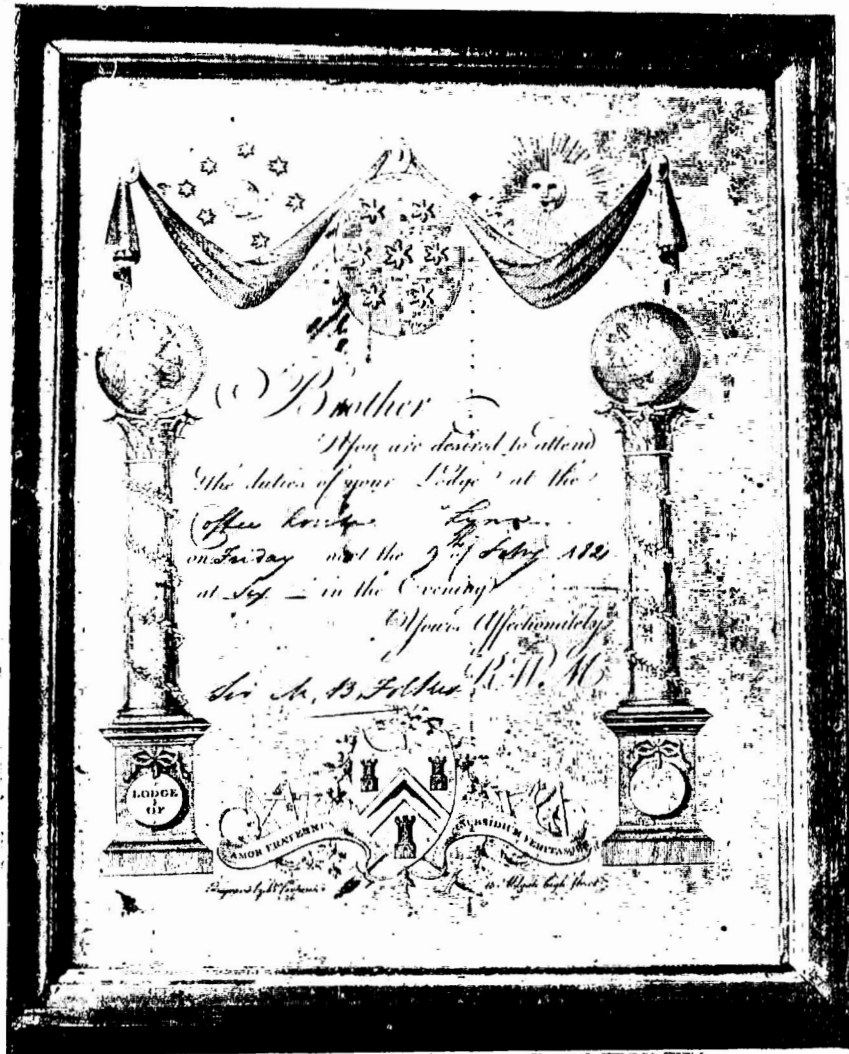 Brother
You are desired to attend
the duties of your Lodge at the
Coffee house Lynn
on Friday next the 9th of Feby 1821
at Six in the Evening
Yours Affectionately
Sir M. B. Folkes R.W.M
LODGE
OF
AMOR FRATERNUS SUBSIDIUM VERITAS
Engraved by 
Aldgate high Street